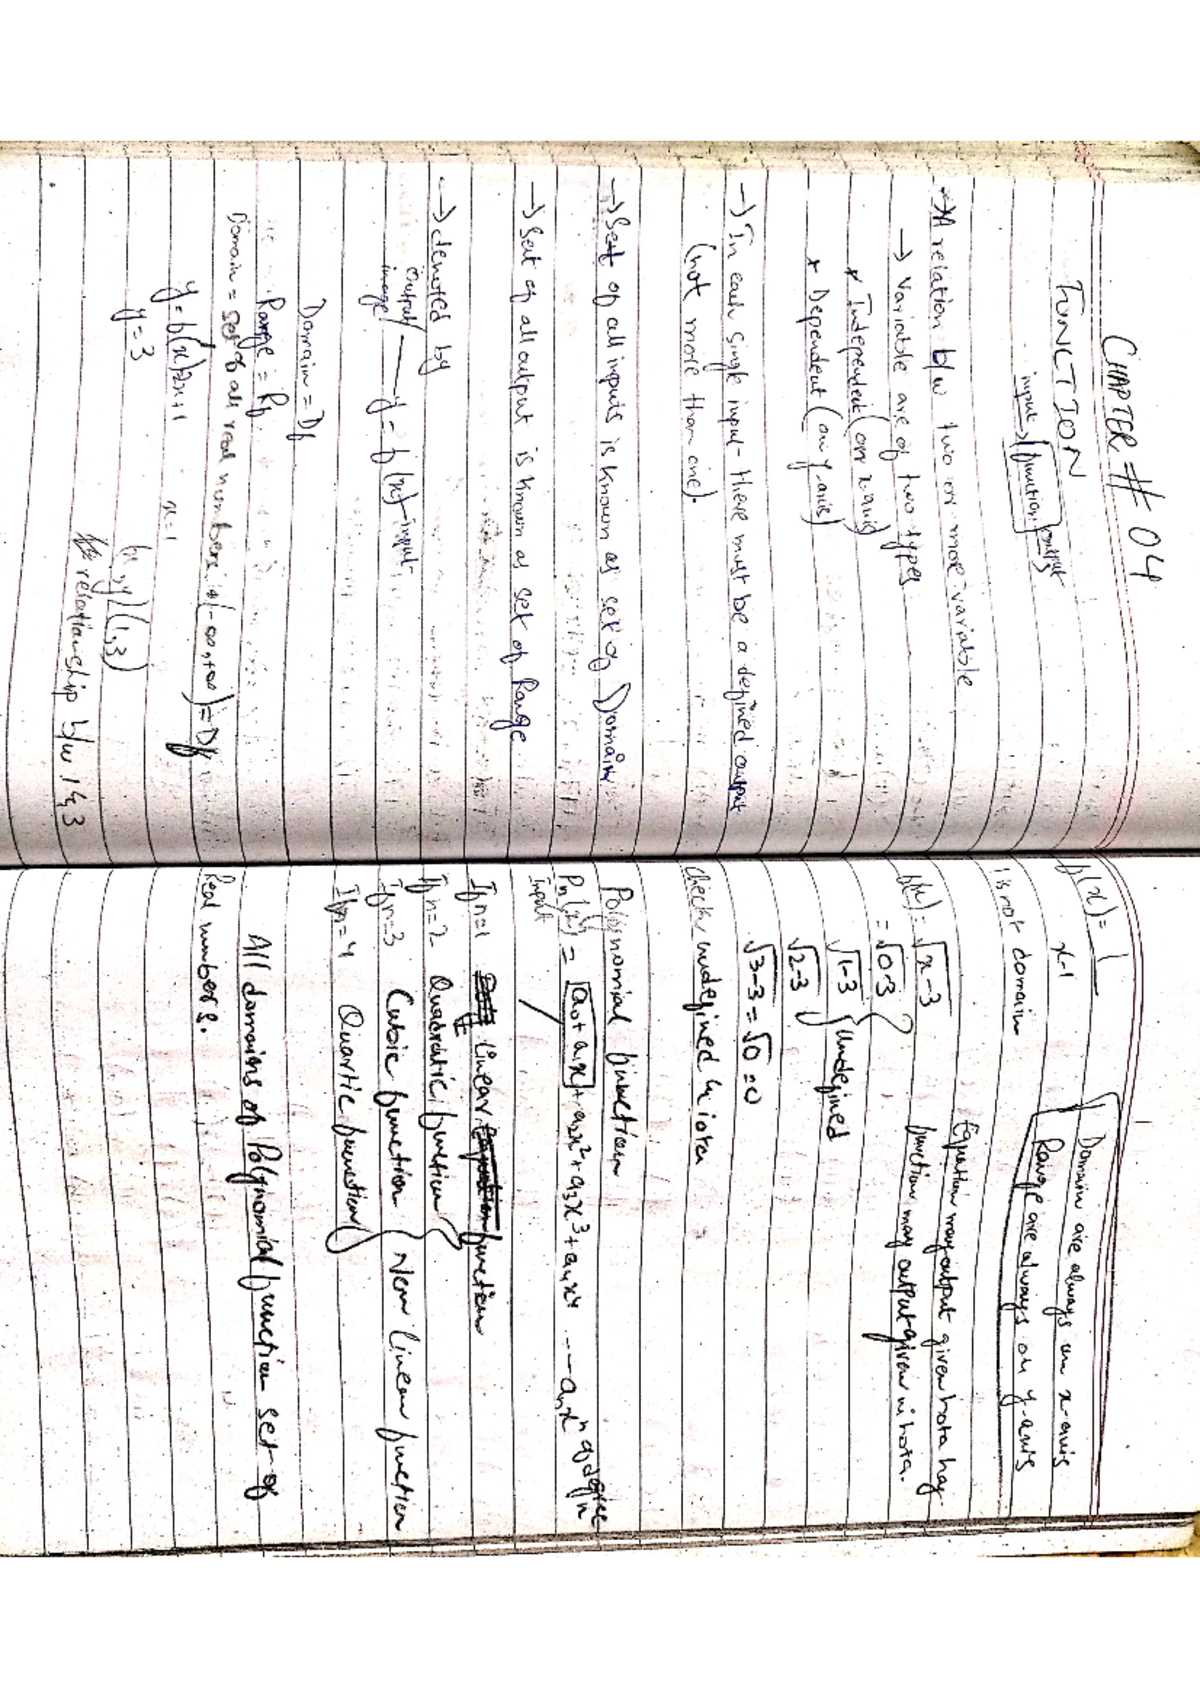 CHAPTER # 04
FUNCTION
input → function output →
→ A relation b/w two or more variable
→ Variable are of two types
* Independent (on x-axis)
* Dependent (on y-axis)
→ In each single input - there must be a defined output
(not more than one).
→ Set of all inputs is known as set of Domain
→ Set of all output is known as set of Range
→ denoted by
output image — y = f(x) - input
Domain = Df
Range = Rf
Domain = set of all real numbers (-∞, +∞) = Df
y = f(x) 2x+1 x=1
y = 3
(x, y) (1, 3)
relationship b/w 1 & 3
f(x) = 1
x-1
Domain are always on x-axis
Range are always on y-axis
1 is not domain
Equation may output given hota hay
f(x) = √x-3
function may output given ni hota.
= √0-3
√1-3 } undefined
√2-3
√3-3 = √0 = 0
check undefined & iota
Polynomial function
Pn(x) = a₀ + a₁x + a₂x² + a₃x³ + a₄x⁴ --- aₙxⁿ of degree n
Input
If n=1 Linear function
If n=2 Quadratic function
If n=3 Cubic function } Non linear function
If n=4 Quartic function
All domains of Polynomial function set of
Real numbers.